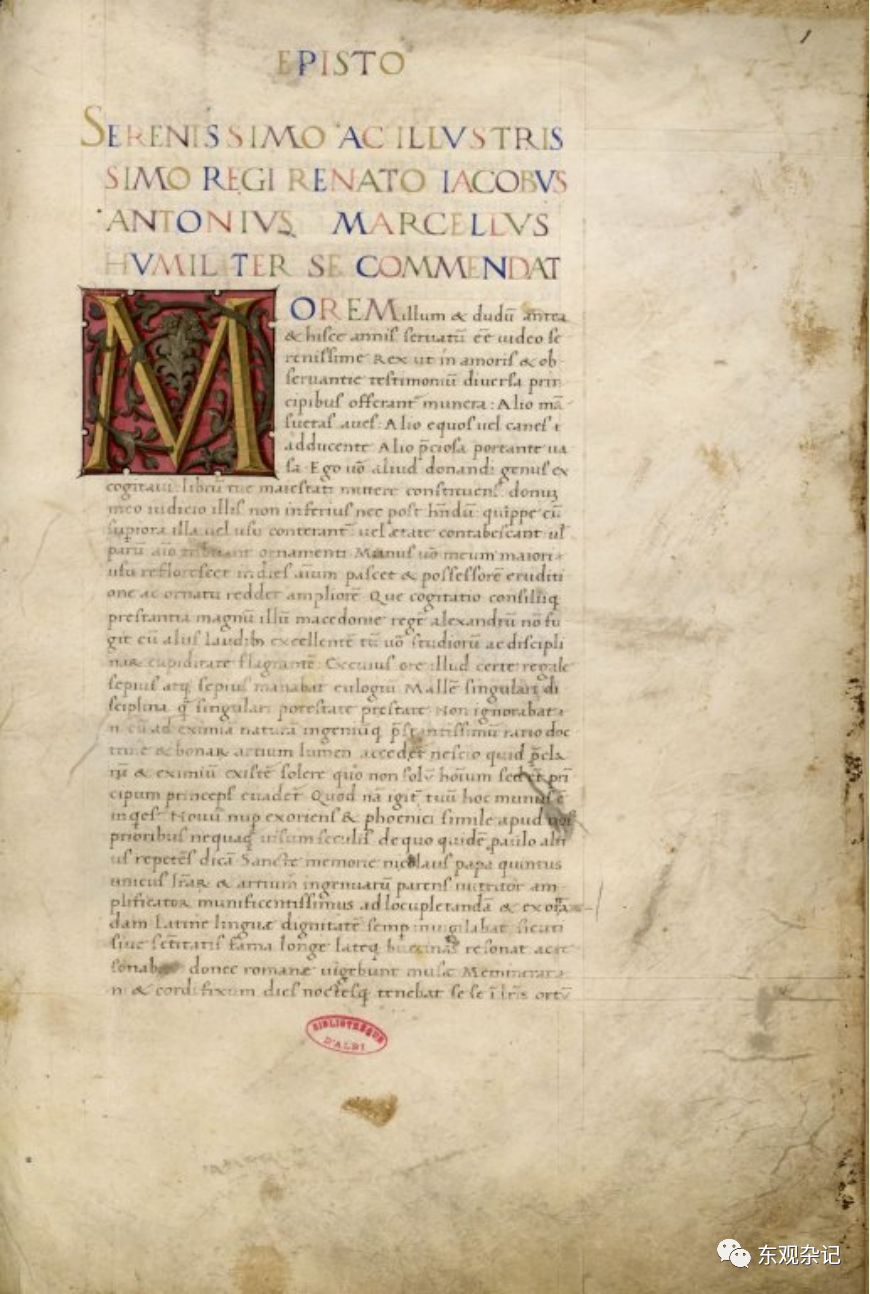 1
EPISTO
SERENISSIMO AC ILLVSTRIS
SIMO REGI RENATO IACOBVS
ANTONIVS MARCELLVS
HVMILITER SE COMMENDAT
MOREM illum & dudū antea
& hisce annis seruatū eē uideo se
renissime Rex ut in amoris & ob
seruantie testimoniū diuersa prin
cipibus offerant munera: Alio mā
suetas aues: Alio equos uel canes
adducente Alio p̄ciosa portante ua
sa. Ego uō aliud donandi genus ex
cogitaui: librū tue maiestati mittere constituens donū
meo iudicio illis non inferius nec post hn̄dū: quippe cū
supiora illa uel usu conterant uel ętate contabescant ul̄
paru aīo tribuant ornamenti. Manus uō meum maiori
usu reflorescet indies aīum pascet & possessorē eruditi
one ac ornatu reddet ampliorē. Que cogitatio consiliiq
prestantia magnū illū macedonie regē alexandrū nō fu
git cū aliis laudibꝫ excellentē tū uō studiorū ac discipli
nar cupiditate flagrantē: Ex cuius ore illud certe regale
sepius atq sepius manabat eulogiū Malle singulari di
sciplina q̄ singulari potestate prestare. Non ignorabat
n. cū ad eximiā naturā ingeniūq p̄stantissimū ratio doc
trinę & bonar artium lumen accedet nescio quid p̄cla
rū & eximiū existē solere quo non solū hoīum sed et pri
cipum princeps euadet. Quod nā igit tuū hoc munus ē
inqes. Nouū nup exoriens & phoenici simile apud nos
prioribus nequaq uisum seculis de quo quidē paulo alti
us repetēs dicā. Sancte memorie nicolaus papa quintus
unicus lr̄ar & artium ingenuarū parens nutritor am
plificator munificentissimus ad locupletandā & exornā
dam latine linguę dignitatē semp inuigilabat sicuti
siue sctitatis fama longe lateq buccinas resonat ac re
sonabit donec romanę uigebunt musę. Meminerat
n. & cordi fixum dies noctesq tenebat se se ī lr̄is ortū
BIBLIOTHEQUE
D'ALBI
东观杂记